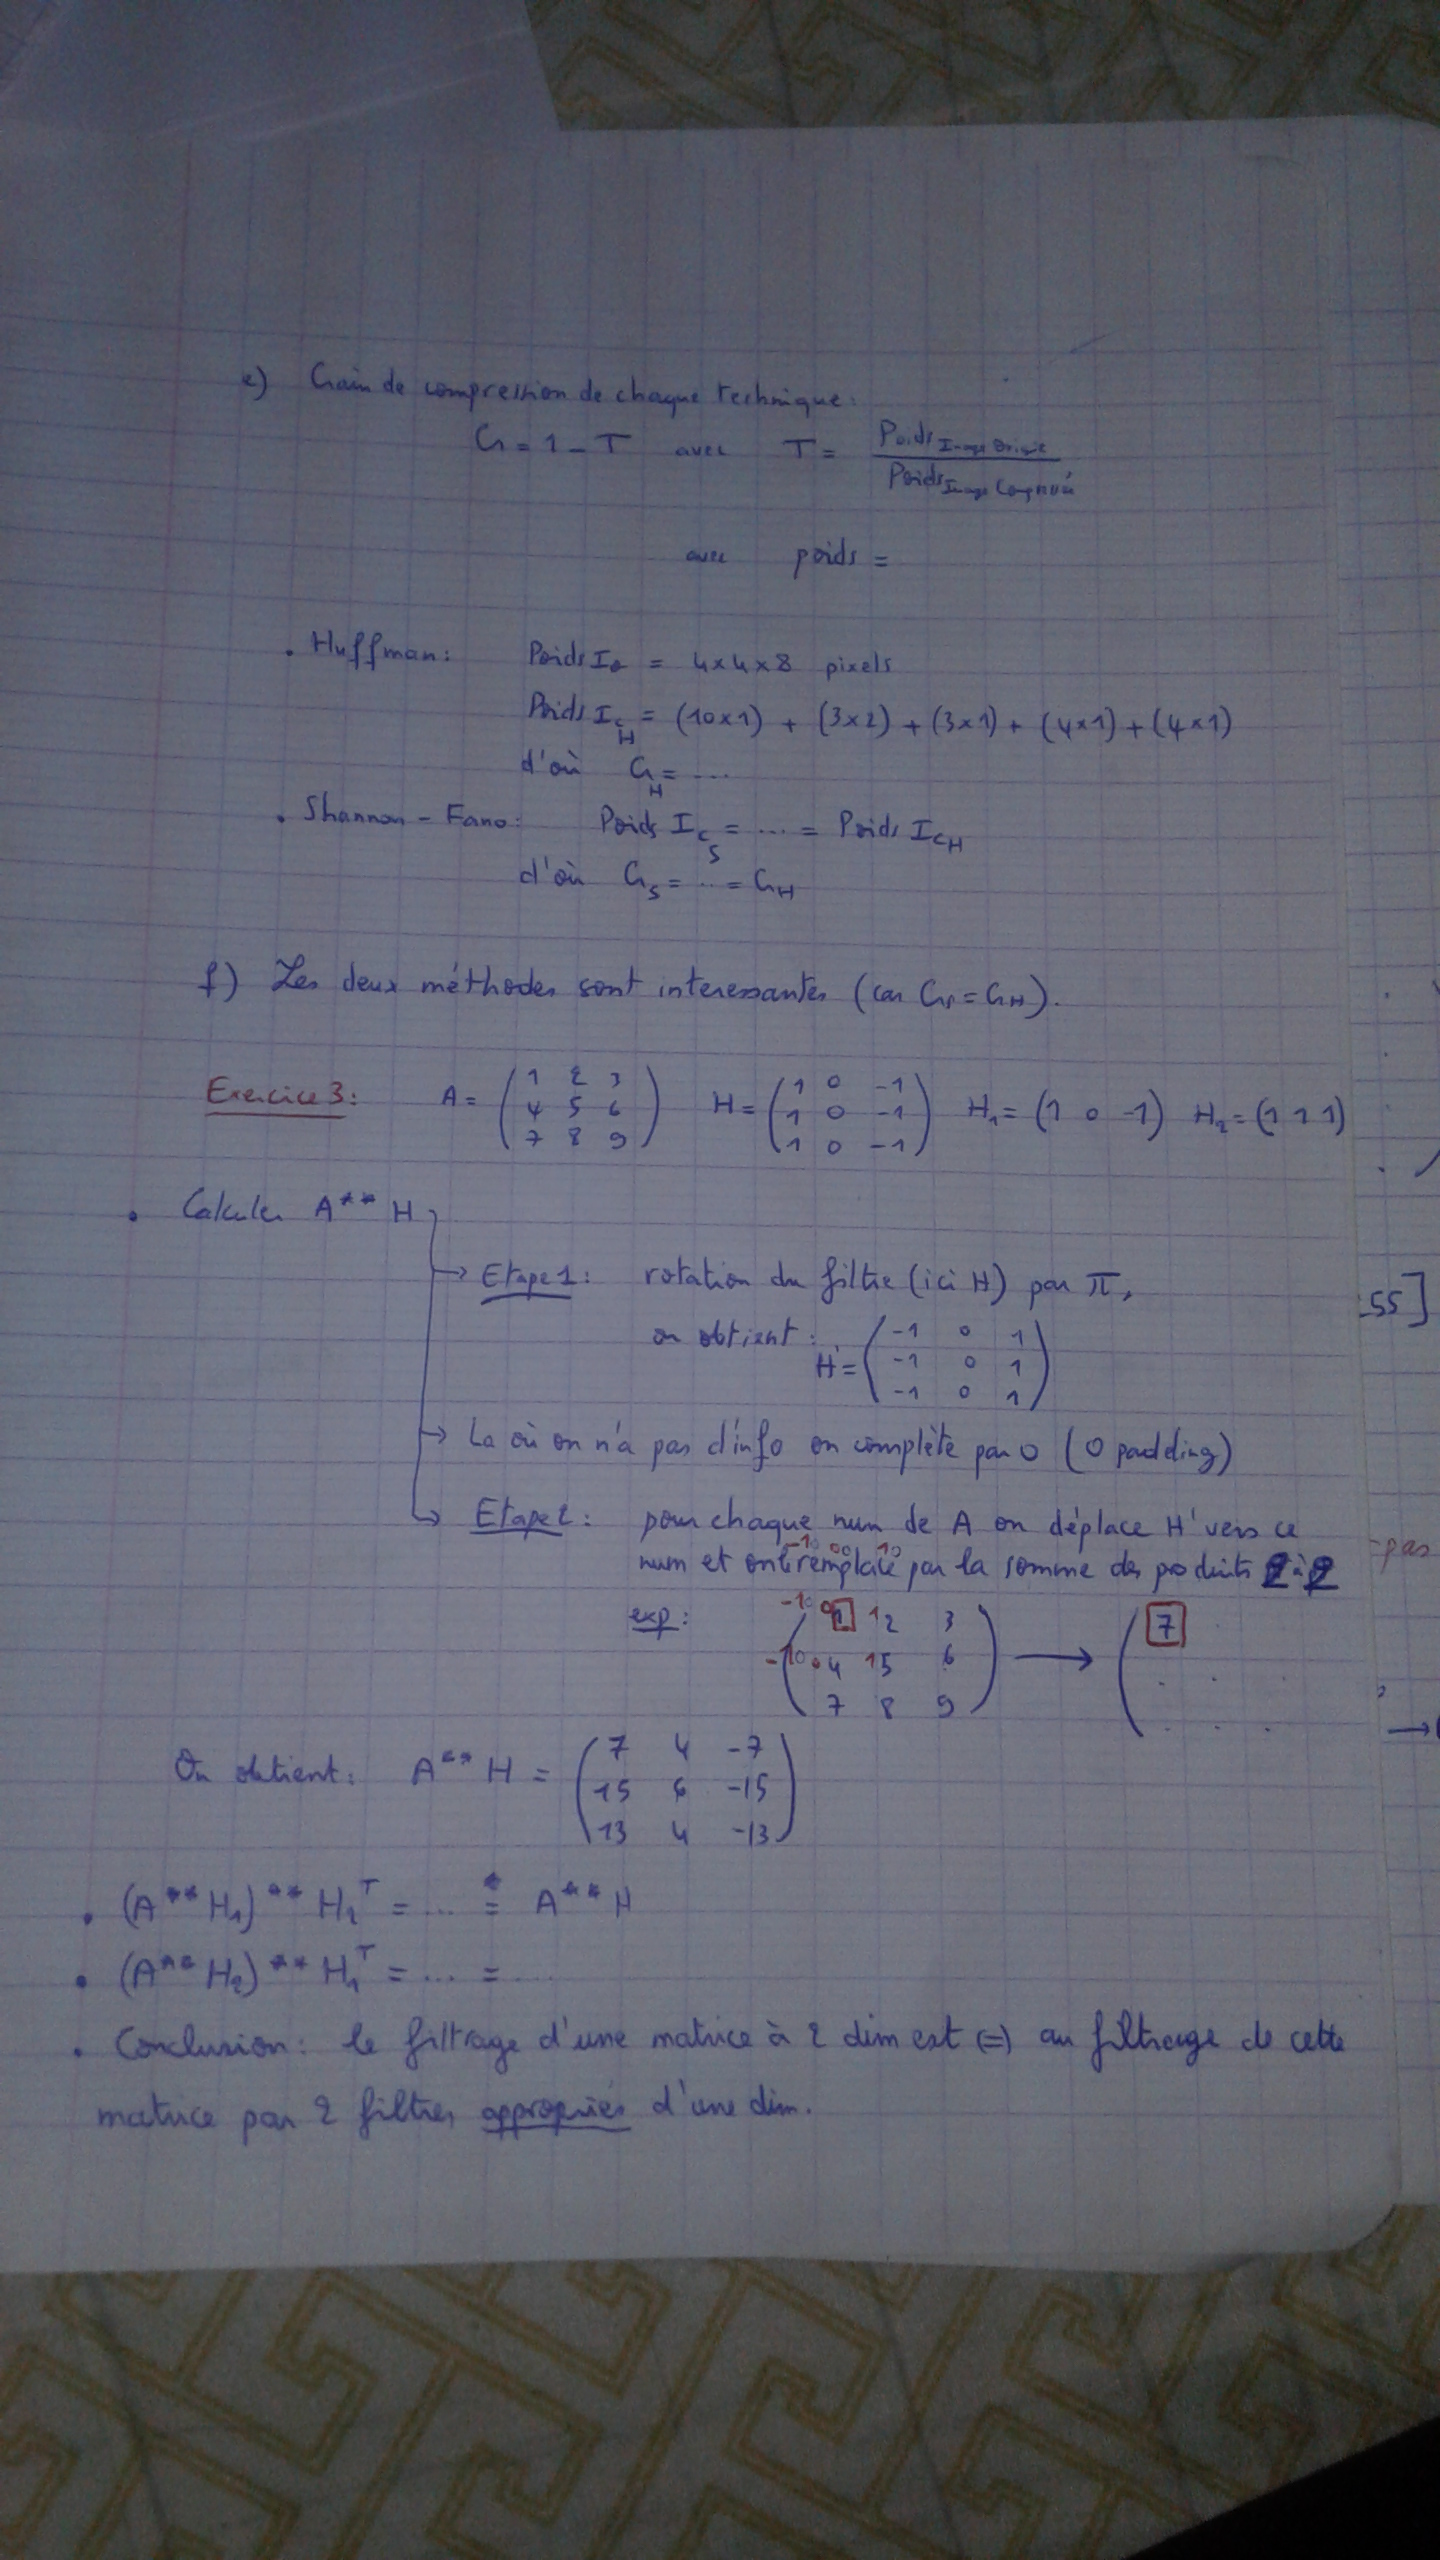 e) Gain de compression de chaque technique:
G = 1 - T avec T = Poids Image Origine / Poids Image Compressée
avec poids =
. Huffman: Poids Io = 4x4x8 pixels
Poids Ic_H = (10x1) + (3x2) + (3x1) + (4x1) + (4x1)
d'où G_H = ....
. Shannon-Fano: Poids Ic_S = .... = Poids Ic_H
d'où G_S = ... = G_H
f) Les deux méthodes sont interessantes (car G_S = G_H).
Exercice 3: A = (1 2 3 H = (1 0 -1 H₁ = (1 0 -1) H₂ = (1 1 1)
4 5 6 1 0 -1
7 8 9) 1 0 -1)
. Calculer A** H
→ Etape 1: rotation du filtre (ici H) par π,
on obtient: H' = (-1 0 1
-1 0 1
-1 0 1)
→ La où on n'a pas d'info on complète par 0 (0 padding)
→ Etape 2: pour chaque num de A on déplace H' vers ce
num et on le remplace par la somme des produits 2 à 2
-10 00 10
exp: (-10 01 12 3 → (7
-10 04 15 6 . .
7 8 9) . . .
On obtient: A** H = (7 4 -7
15 6 -15
13 4 -13)
. (A** H₁)** H₂ᵀ = ... = A** H
. (A** H₂)** H₁ᵀ = ... = ....
. Conclusion: le filtrage d'une matrice à 2 dim est (=) au filtrage de cette
matrice par 2 filtres appropriés d'une dim.
55]
-pas
→